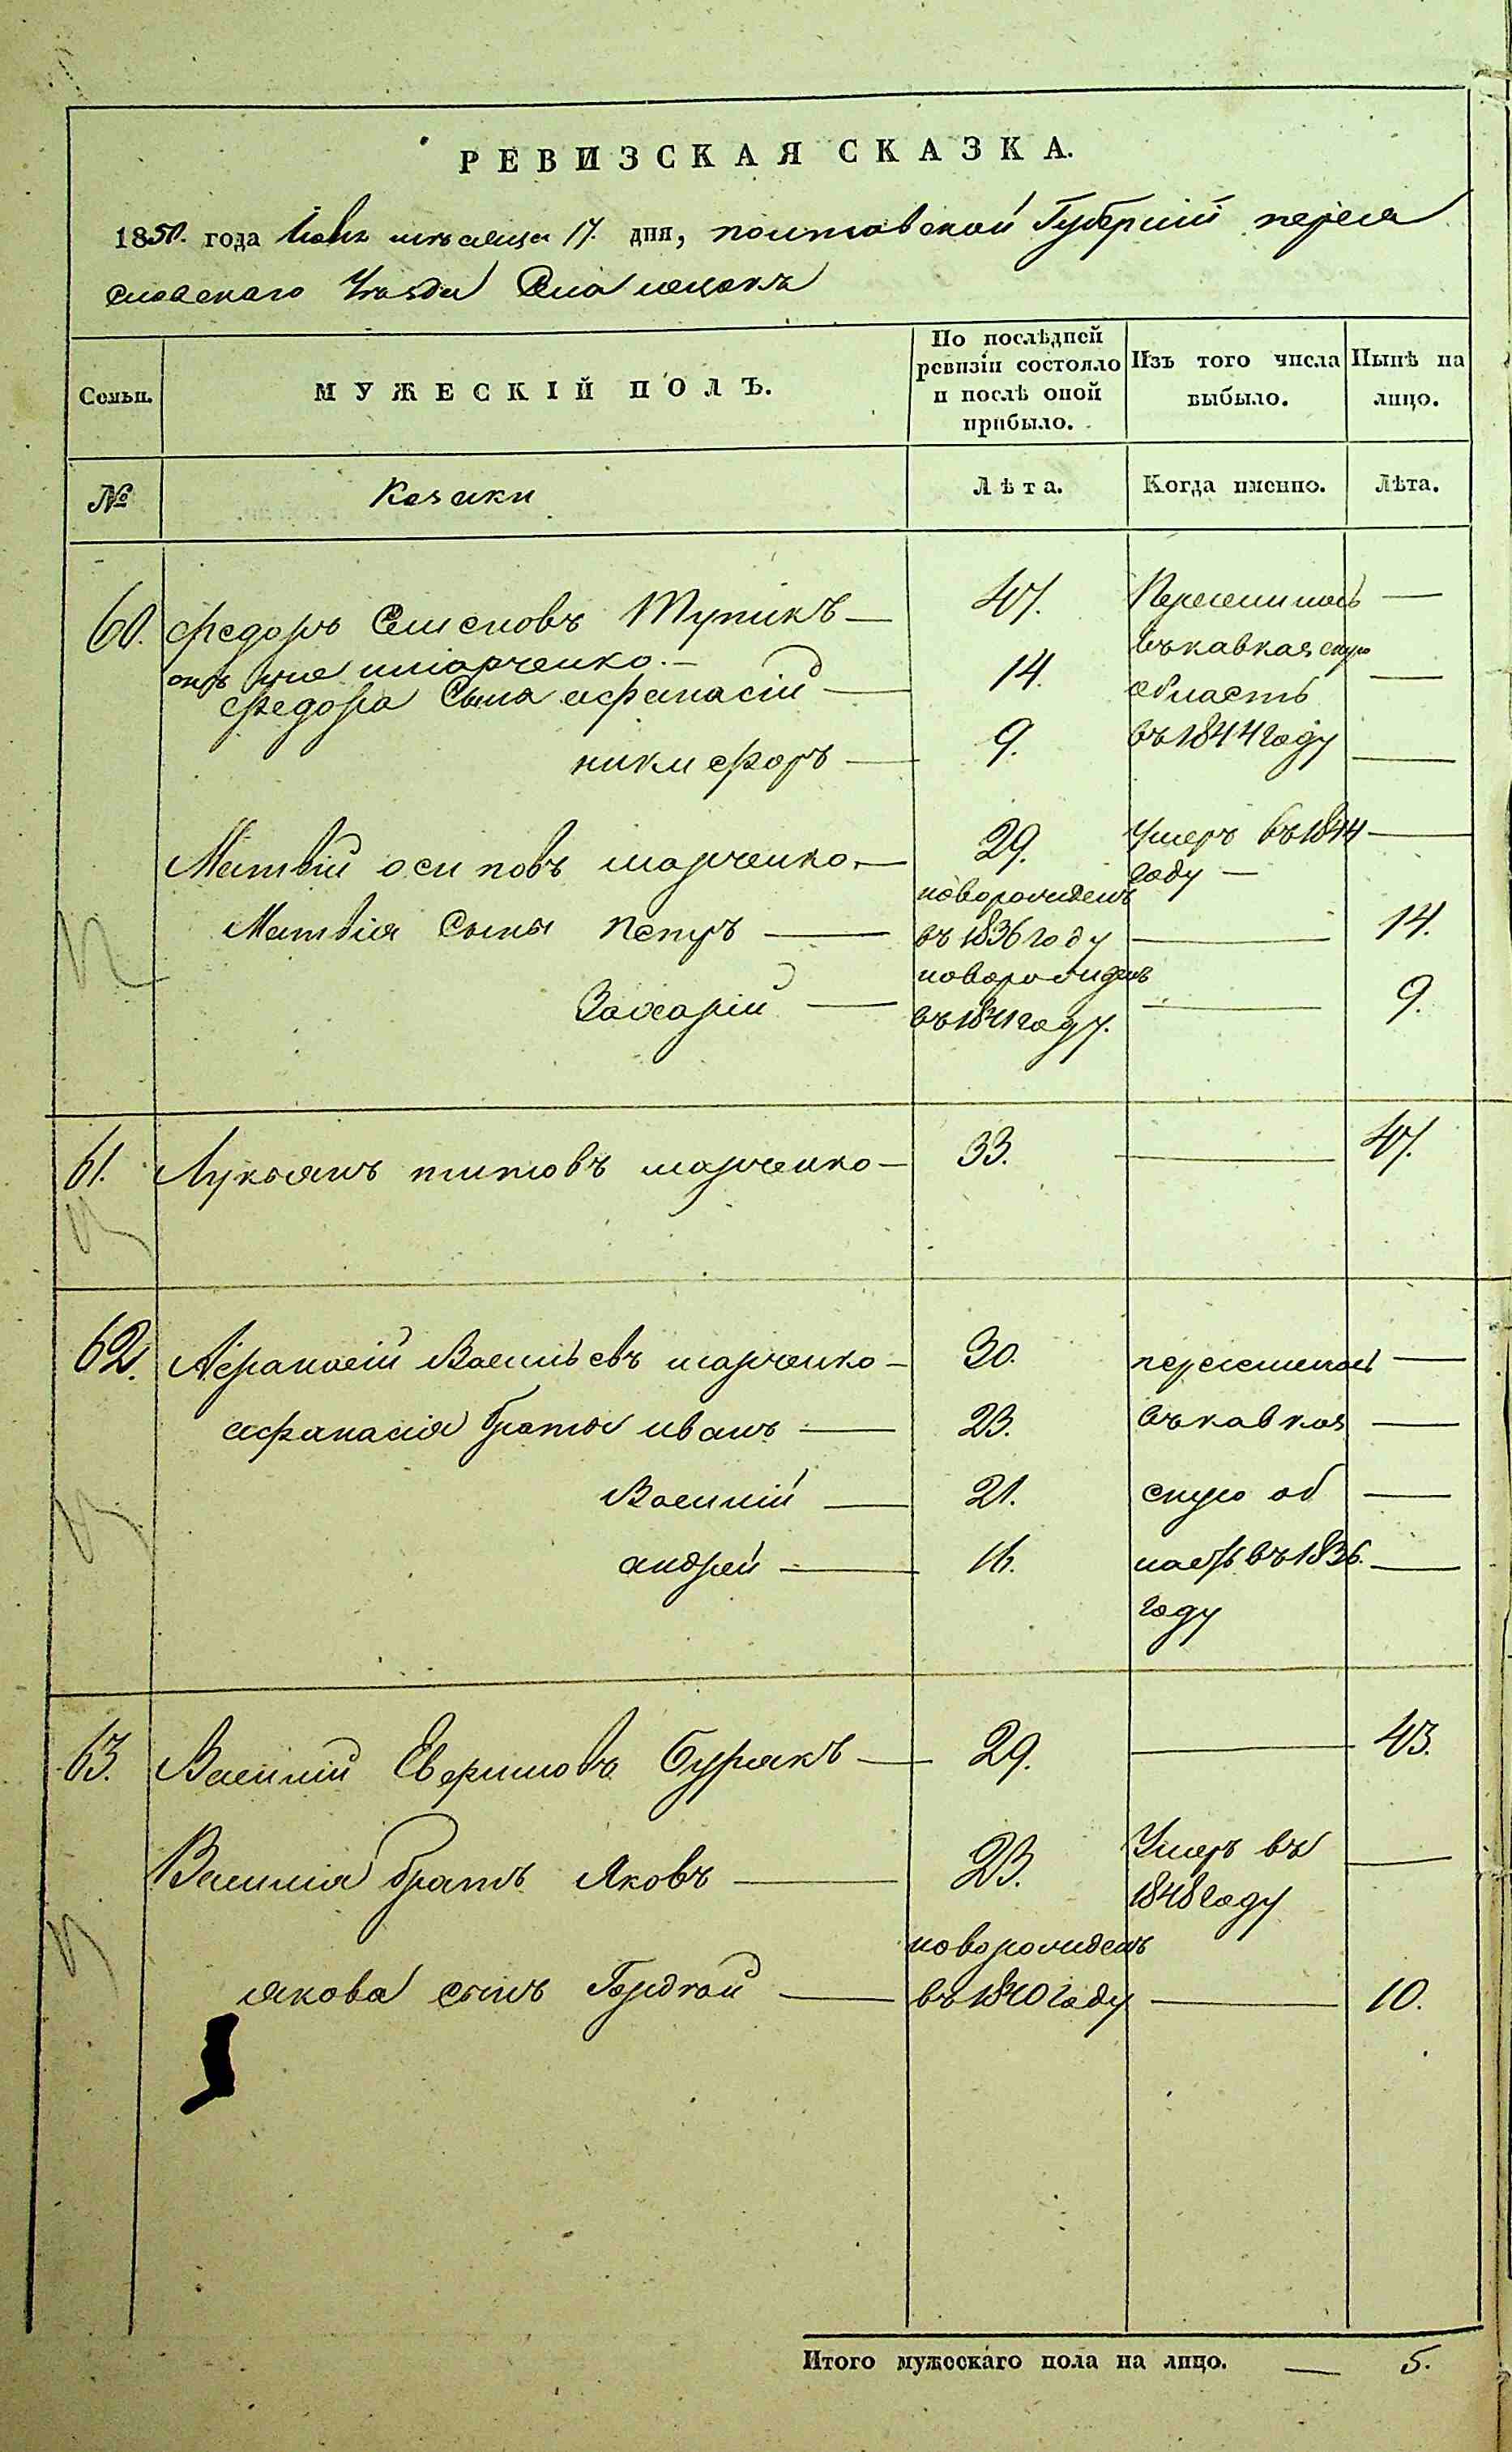 РЕВИЗСКАЯ СКАЗКА.
1850. года мѣсяца 17. дня, полтавской Губернии переяс
ловскаго Уѣзда Села
Семьи. МУЖЕСКІЙ ПОЛЪ. По послѣдней ревизіи состояло и послѣ оной прибыло. Изъ того числа выбыло. Нынѣ на лицо.
№ Козаки Лѣта. Когда именно. Лѣта.
60. Федоръ Семеновъ Тупикъ — 47. Переселились —
онъ же шларченко. — въ кавказскую
Федора Сыны афанасій — 14. область —
никифоръ — 9. въ 1844 году —
Матвій осиповъ шарченко. — 29. Умеръ въ 1844 —
году —
Матвія Сыны петръ — новорожденъ въ 1836 году — 14.
Захарій — новорожденъ въ 1841 году. — 9.
61. Лукьянъ титовъ шарченко — 33. — 47.
62. Афанасій Васильевъ шарченко — 30. переселились —
афанасія братья иванъ — 23. въ кавказ —
Василій — 21. скую об —
андрей — 16. ласть въ 1836. —
году
63. Василій Бурякъ — 29. — 43.
Василія братъ Яковъ — 23. Умеръ въ —
1848 году
якова сынъ Гордѣй — новорожденъ въ 1840 году — 10.
Итого мужескаго пола на лицо. — 5.